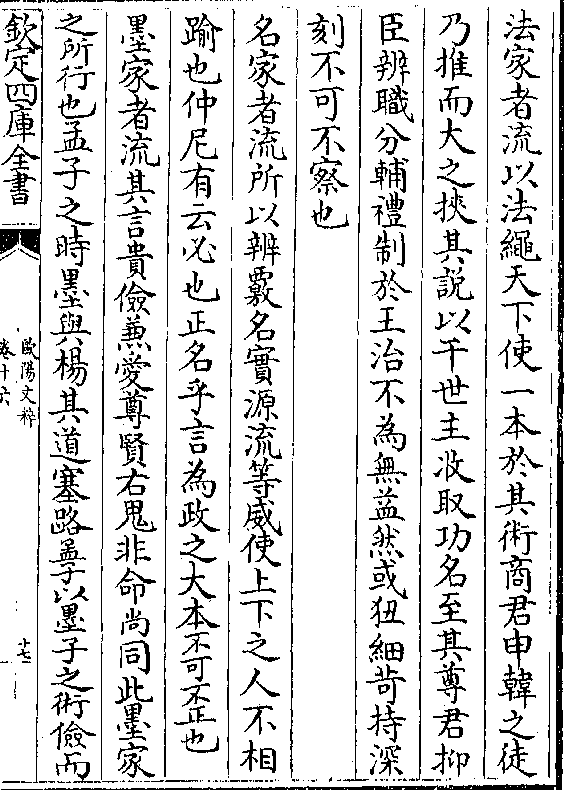 法家者流以法繩天下使一本於其術商君申韓之徒
乃推而大之挾其說以干世主收取功名至其尊君抑
臣辨職分輔禮制於王治不為無益然或狃細苛持深
刻不可不察也
名家者流所以辨覈名實源流等威使上下之人不相
踰也仲尼有云必也正名乎言為政之大本不可不正也
墨家者流其言貴儉兼愛尊賢右鬼非命尚同此墨家
之所行也孟子之時墨與楊其道塞路孟子以墨子之術儉而
欽定四庫全書
歐陽文粹
卷十六
十七